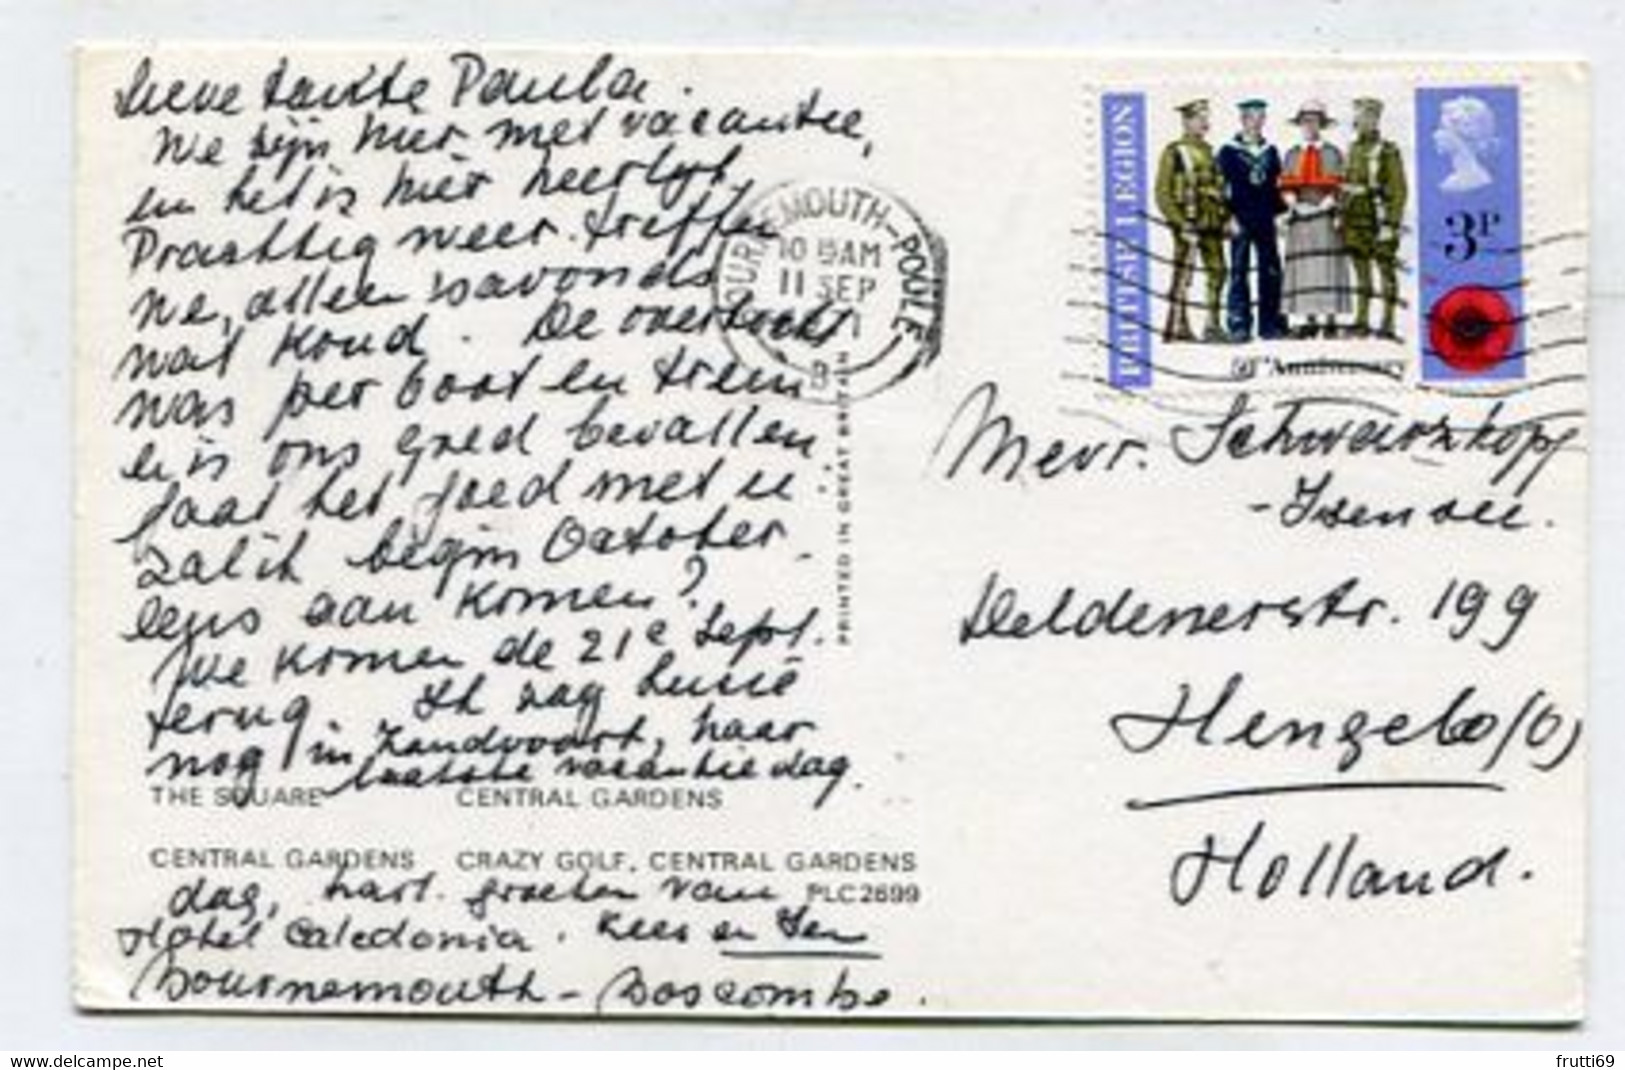 Lieve tante Paula.
We zijn hier met vacantie,
en het is hier heerlijk
Prachtig weer treffen
we, alleen 's avonds
wat koud. De overtocht
was per boot en trein
en is ons goed bevallen
Gaat het goed met u
zal ik begin October
eens aan komen?
We komen de 21e Sept.
terug. Ik zag
nog in Zandvoort, haar
laatste vacantiedag.
THE SQUARE CENTRAL GARDENS
CENTRAL GARDENS CRAZY GOLF, CENTRAL GARDENS
dag, hart. groeten van PLC2699
Hotel Caledonia. Kees en
Bournemouth - Boscombe.
PRINTED IN GREAT BRITAIN
BOURNEMOUTH-POOLE
10 15AM
11 SEP
B
BRITISH LEGION
3P
50th Anniversary
Mevr. Schwarzkopf
-Isensee.
Deldenerstr. 199
Hengelo (O)
Holland.
frutti69